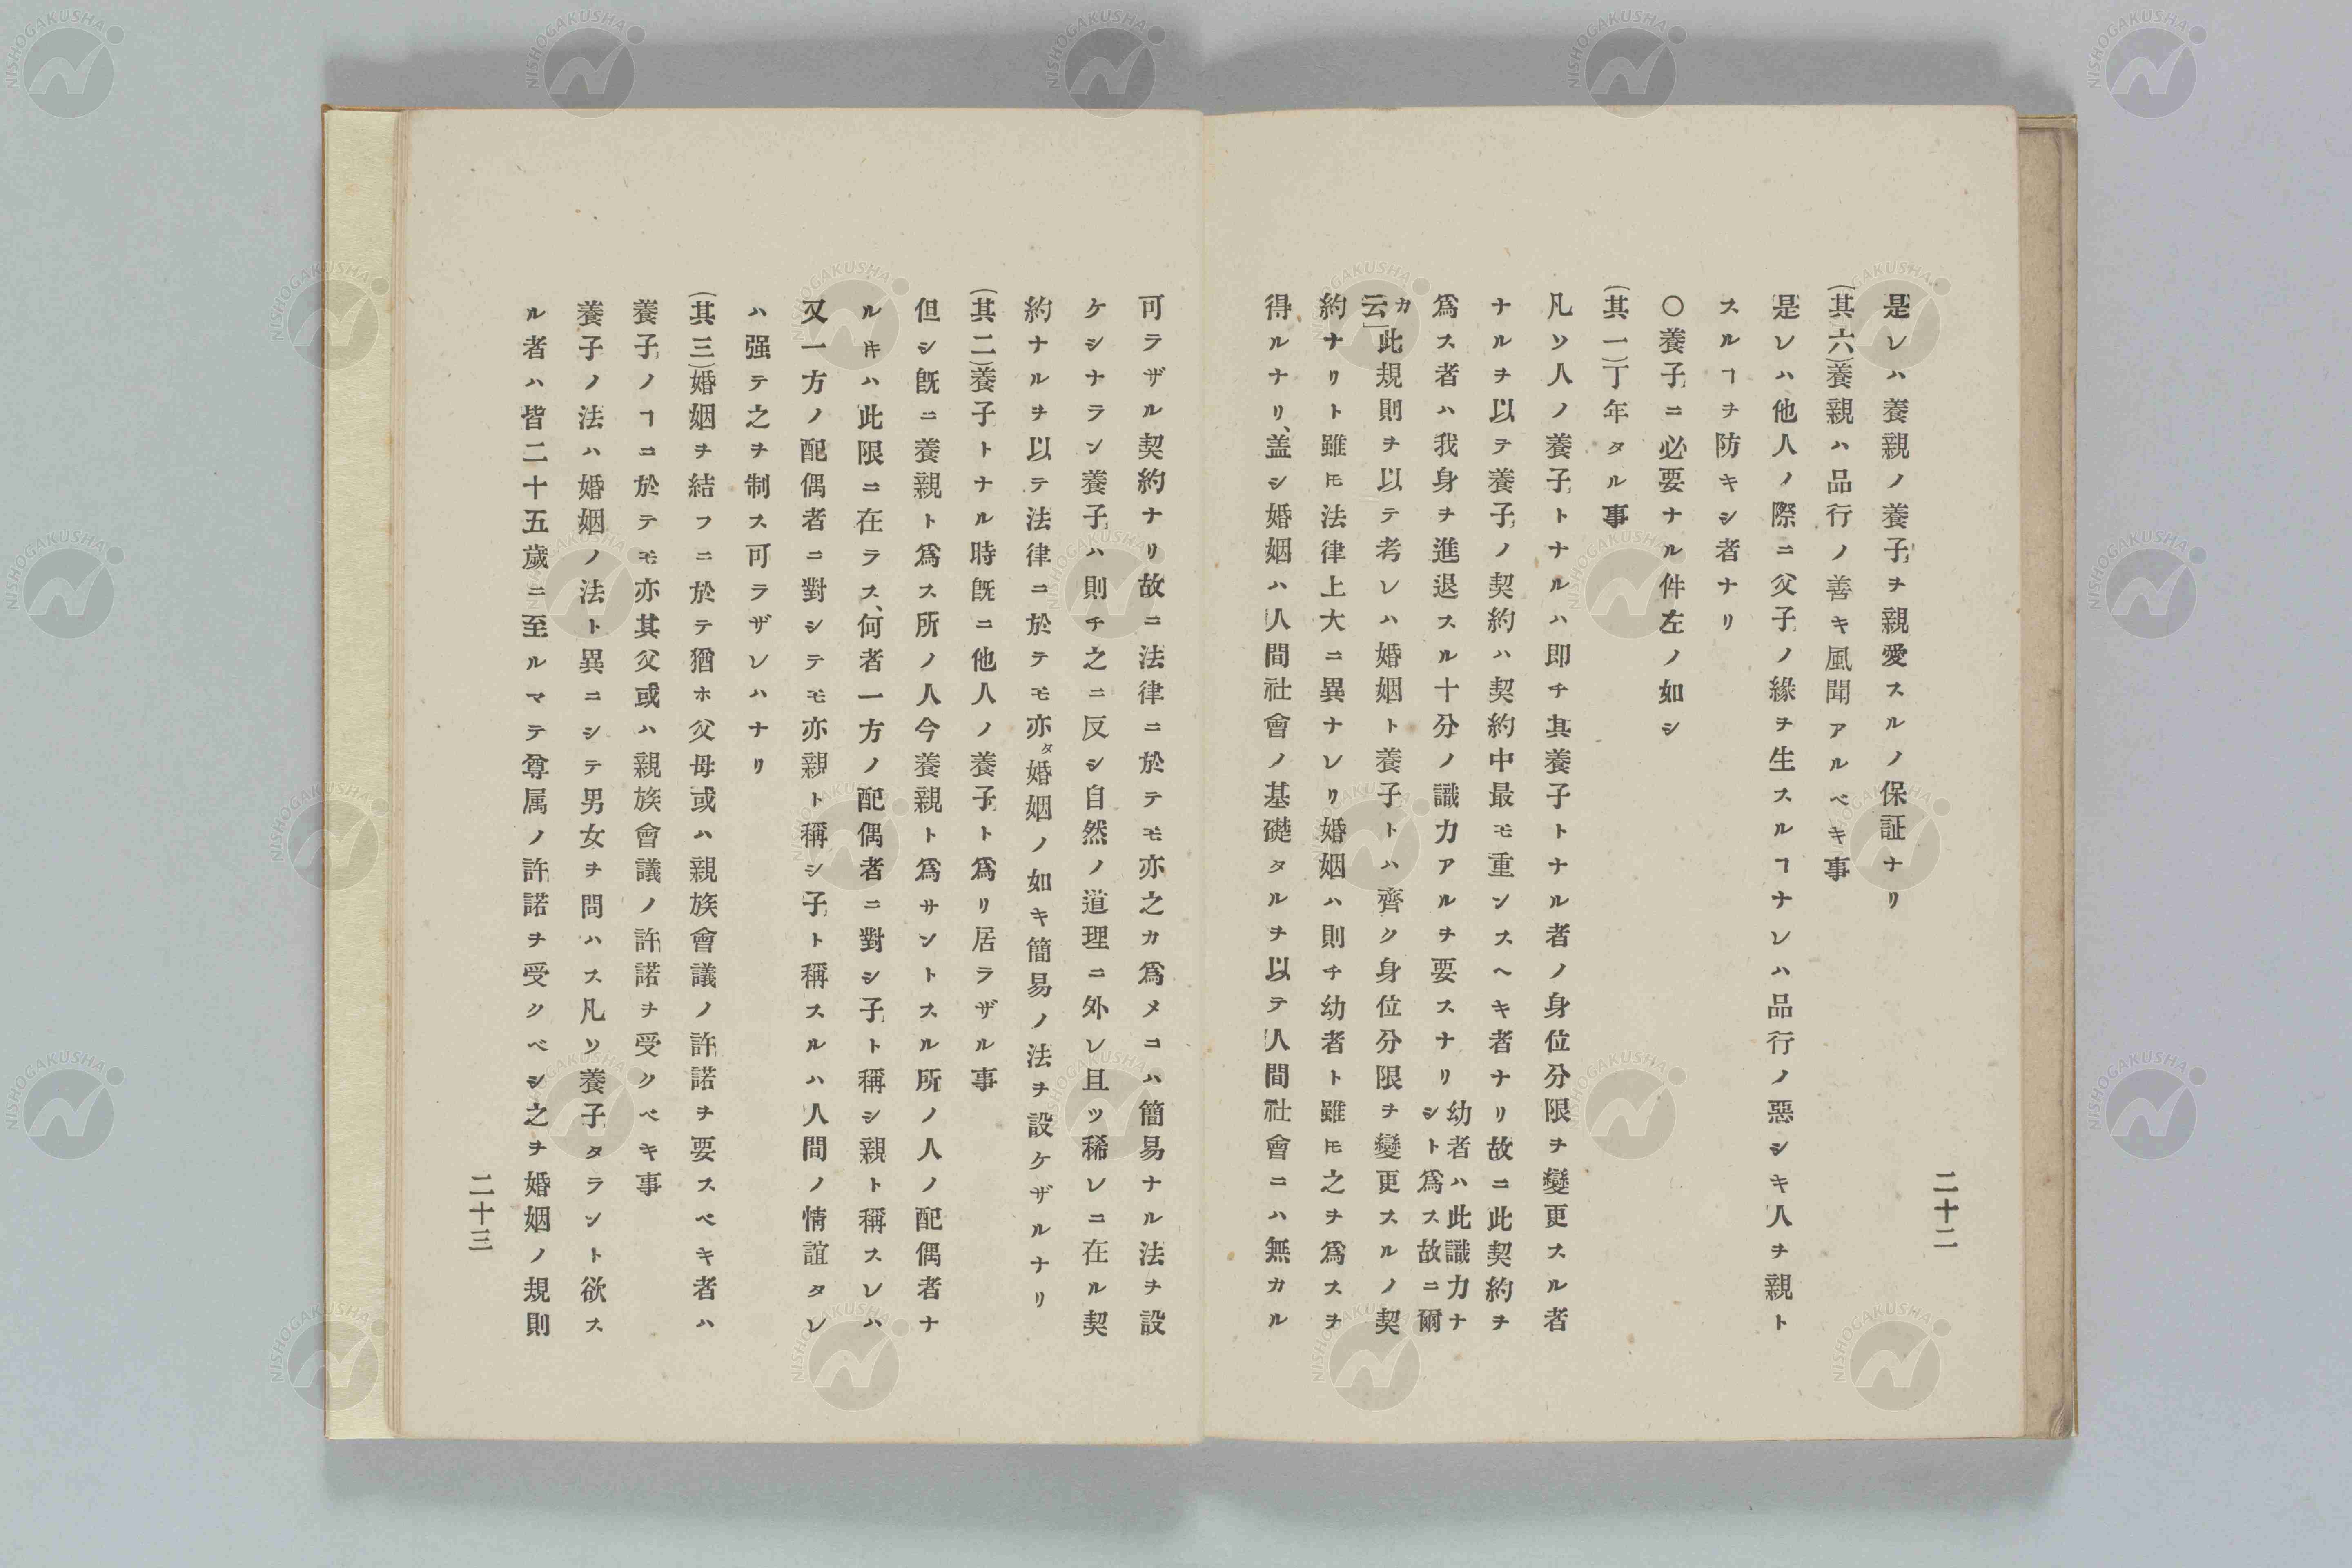 二十二
是レハ養親ノ養子ヲ親愛スルノ保証ナリ
(其六)養親ハ品行ノ善キ風聞アルベキ事
是レハ他人ノ際ニ父子ノ縁ヲ生スルヿナレハ品行ノ惡シキ人ヲ親ト
スルヿヲ防キシ者ナリ
〇養子ニ必要ナル件左ノ如シ
(其一)丁年タル事
凡ソ人ノ養子トナルハ即チ其養子トナル者ノ身位分限ヲ變更スル者
ナルヲ以テ養子ノ契約ハ契約中最モ重ンスヘキ者ナリ故ニ此契約ヲ
爲ス者ハ我身ヲ進退スル十分ノ識力アルヲ要スナリ幼者ハ此識力ナシト爲ス故ニ爾
カ云」此規則ヲ以テ考レハ婚姻ト養子トハ齊ク身位分限ヲ變更スルノ契
約ナリト雖𪜈法律上大ニ異ナレリ婚姻ハ則チ幼者ト雖𪜈之ヲ爲スヲ
得ルナリ、盖シ婚姻ハ人間社會ノ基礎タルヲ以テ人間社會ニハ無カル
可ラザル契約ナリ故ニ法律ニ於テモ亦之カ爲メニハ簡易ナル法ヲ設
ケシナラン養子ハ則チ之ニ反シ自然ノ道理ニ外レ且ツ稀レニ在ル契
約ナルヲ以テ法律ニ於テモ亦タ婚姻ノ如キ簡易ノ法ヲ設ケザルナリ
(其二)養子トナル時既ニ他人ノ養子ト爲リ居ラザル事
但シ既ニ養親ト爲ス所ノ人今養親ト爲サントスル所ノ人ノ配偶者ナ
ルキハ此限ニ在ラス、何者一方ノ配偶者ニ對シ子ト稱シ親ト稱スレハ
又一方ノ配偶者ニ對シテモ亦親ト稱シ子ト稱スルハ人間ノ情誼タレ
ハ强テ之ヲ制ス可ラザレハナリ
(其三)婚姻ヲ結フニ於テ猶ホ父母或ハ親族會議ノ許諾ヲ要スベキ者ハ
養子ノヿニ於テモ亦其父或ハ親族會議ノ許諾ヲ受クベキ事
養子ノ法ハ婚姻ノ法ト異ニシテ男女ヲ問ハス凡ソ養子タラント欲ス
ル者ハ皆二十五歲ニ至ルマテ尊属ノ許諾ヲ受クベシ之ヲ婚姻ノ規則
二十三